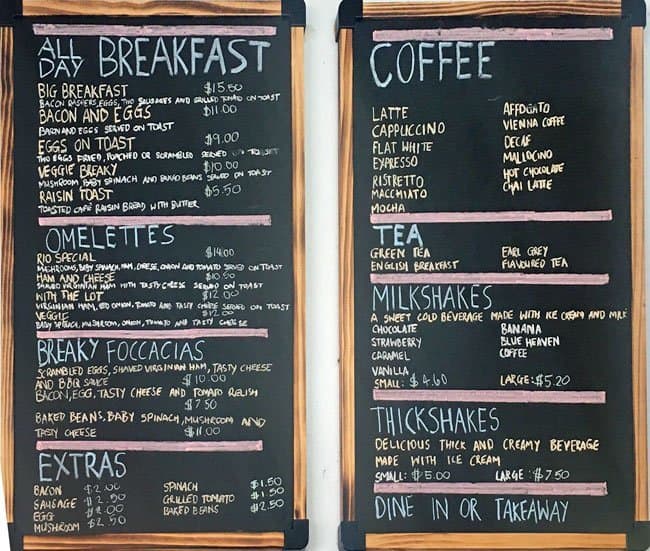 ALL DAY BREAKFAST
BIG BREAKFAST $15.50
BACON RASHERS, EGGS, TWO SAUSAGES AND GRILLED TOMATO ON TOAST
BACON AND EGGS $11.00
BACON AND EGGS SERVED ON TOAST
EGGS ON TOAST $9.00
TWO EGGS FRIED, POACHED OR SCRAMBLED SERVED ON TOAST
VEGGIE BREAKY $10.00
MUSHROOM BABY SPINACH AND BAKED BEANS SERVED ON TOAST
RAISIN TOAST $5.50
TOASTED CAFE RAISIN BREAD WITH BUTTER
OMELETTES
RIO SPECIAL $14.00
MUSHROOMS, BABY SPINACH, HAM, CHEESE, ONION AND TOMATO SERVED ON TOAST
HAM AND CHEESE $10.50
SHAVED VIRGINIAN HAM WITH TASTY CHEESE SERVED ON TOAST
WITH THE LOT $12.00
VIRGINIAN HAM, RED ONION, TOMATO AND TASTY CHEESE SERVED ON TOAST
VEGGIE $12.00
BABY SPINACH, MUSHROOM, ONION, TOMATO AND TASTY CHEESE
BREAKY FOCCACIAS
SCRAMBLED EGGS, SHAVED VIRGINIAN HAM, TASTY CHEESE
AND BBQ SAUCE $10.00
BACON, EGG, TASTY CHEESE AND TOMATO RELISH
$7.50
BAKED BEANS, BABY SPINACH, MUSHROOM AND
TASTY CHEESE $11.00
EXTRAS
BACON $2.00
SAUSAGE $2.50
EGG $2.00
MUSHROOM $2.50
SPINACH $1.50
GRILLED TOMATO $1.50
BAKED BEANS $2.50
COFFEE
LATTE
CAPPUCCINO
FLAT WHITE
EXPRESSO
RISTRETTO
MACCHIATO
MOCHA
AFFOGATO
VIENNA COFFEE
DECAF
MALLOCINO
HOT CHOCOLATE
CHAI LATTE
TEA
GREEN TEA
ENGLISH BREAKFAST
EARL GREY
FLAVOURED TEA
MILKSHAKES
A SWEET COLD BEVERAGE MADE WITH ICE CREAM AND MILK
CHOCOLATE
STRAWBERRY
CARAMEL
VANILLA
BANANA
BLUE HEAVEN
COFFEE
SMALL: $4.60 LARGE: $5.20
THICKSHAKES
DELICIOUS THICK AND CREAMY BEVERAGE
MADE WITH ICE CREAM
SMALL: $5.00 LARGE: $7.50
DINE IN OR TAKEAWAY